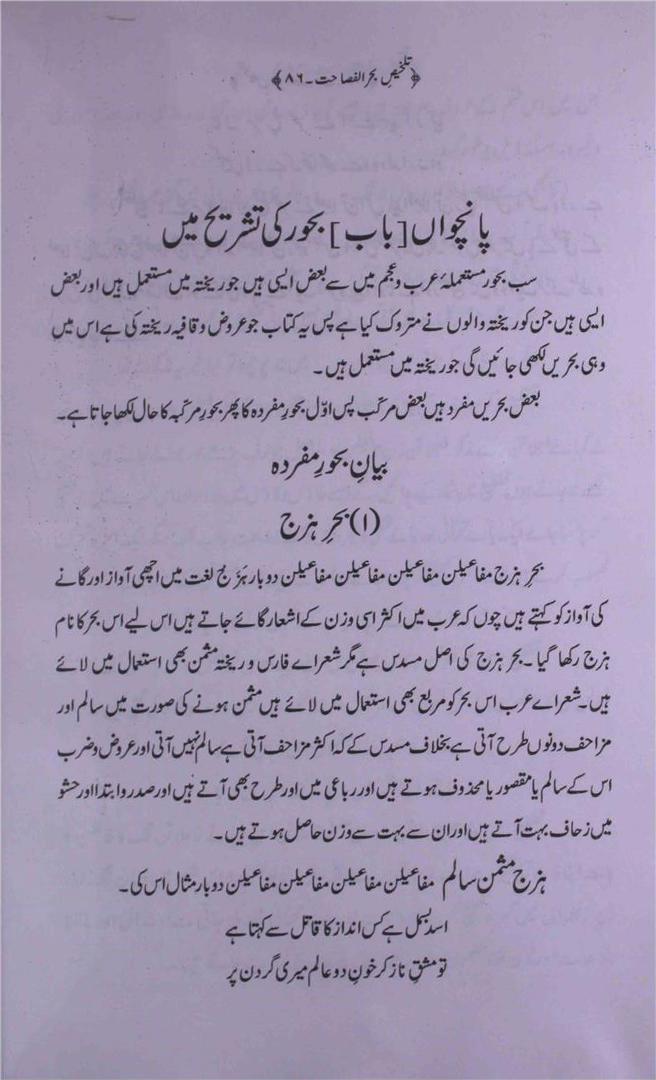 ﴿تلخیصِ بحر الفصاحت۔۸۶﴾
پانچواں [باب] بحور کی تشریح میں
سب بحور مستعملۂ عرب و عجم میں سے بعض ایسی ہیں جو ریختہ میں مستعمل ہیں اور بعض
ایسی ہیں جن کو ریختہ والوں نے متروک کیا ہے پس یہ کتاب جو عروض و قافیہ ریختہ کی ہے اس میں
وہی بحریں لکھی جائیں گی جو ریختہ میں مستعمل ہیں۔
بعض بحریں مفرد ہیں بعض مرکب پس اوّل بحورِ مفردہ کا پھر بحورِ مرکبہ کا حال لکھا جاتا ہے۔
بیانِ بحورِ مفردہ
(۱) بحرِ ہزج
بحرِ ہزج مفاعیلن مفاعیلن مفاعیلن مفاعیلن دو بار ہَزَج لغت میں اچھی آواز اور گانے
کی آواز کو کہتے ہیں چوں کہ عرب میں اکثر اسی وزن کے اشعار گائے جاتے ہیں اس لیے اس بحر کا نام
ہزج رکھا گیا۔ بحر ہزج کی اصل مسدس ہے مگر شعراے فارس و ریختہ مثمن بھی استعمال میں لائے
ہیں۔ شعراے عرب اس بحر کو مربع بھی استعمال میں لائے ہیں مثمن ہونے کی صورت میں سالم اور
مزاحف دونوں طرح آتی ہے بخلاف مسدس کے کہ اکثر مزاحف آتی ہے سالم نہیں آتی اور عروض و ضرب
اس کے سالم یا مقصور یا محذوف ہوتے ہیں اور رباعی میں اور طرح بھی آتے ہیں اور صدر و ابتدا اور حشو
میں زحاف بہت آتے ہیں اور ان سے بہت سے وزن حاصل ہوتے ہیں۔
ہزج مثمن سالم مفاعیلن مفاعیلن مفاعیلن مفاعیلن دو بار مثال اس کی۔
اسد بسمل ہے کس انداز کا قاتل سے کہتا ہے
تو مشقِ ناز کر خونِ دو عالم میری گردن پر